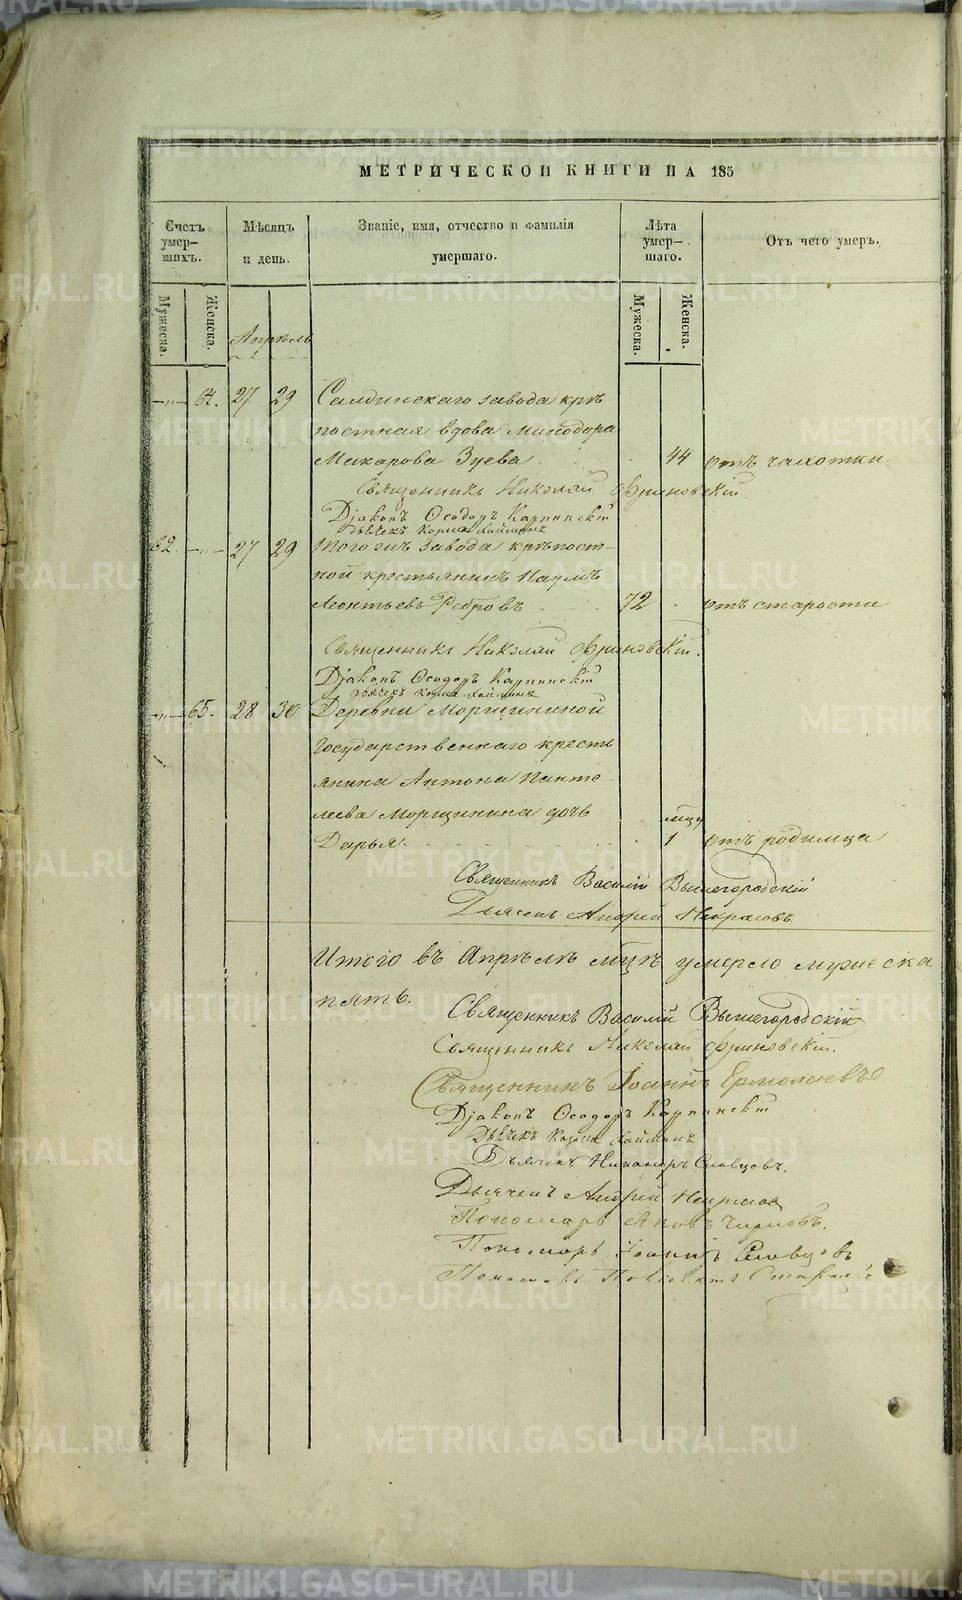 МЕТРИЧЕСКОЙ КНИГИ НА 185
Счетъ умер-шихъ.
Мѣсяцъ и день.
Званіе, имя, отчество и фамилія умершаго.
Лѣта умер-шаго.
Отъ чего умеръ.
Мужеска.
Женска.
Мужеска.
Женска.
Апрѣль
64. 27 29 Салдинскаго завода крѣ
постная вдова Минодора
Макарова Зуева 44 отъ чахотки
Священникъ Николай Фриновскій
Діаконъ Ѳеодоръ Карпинскій
Дьячекъ Козма
62. 27 29 того жъ завода крѣпост-
ной крестьянинъ Наумъ
Леонтьевъ Ребровъ 72 отъ старости
Священникъ Николай Фриновскій.
Діаконъ Ѳеодоръ Карпинскій
Дьячекъ Козма
65. 28 30 Деревни Морщининой
Государственнаго кресть
янина Антона Панте
леева Морщинина дочь мца
Дарья. 1 отъ родимца
Священникъ Василій Вышегородскій
Дьячекъ Андрей Некрасовъ.
Итого въ Апрѣлѣ мцѣ умерло мужеска
пять.
Священникъ Василій Вышегородскій
Священникъ Николай Фриновскій.
Священникъ Іоаннъ Ермолаевъ
Діаконъ Ѳеодоръ Карпинскій
Дьячекъ Козма
Дьячекъ Никаноръ Словцовъ.
Дьячекъ Андрей Некрасовъ
Пономарь Яковъ
Пономарь Іоаннъ Словцовъ
Пономарь
METRIKI.GASO-URAL.RU